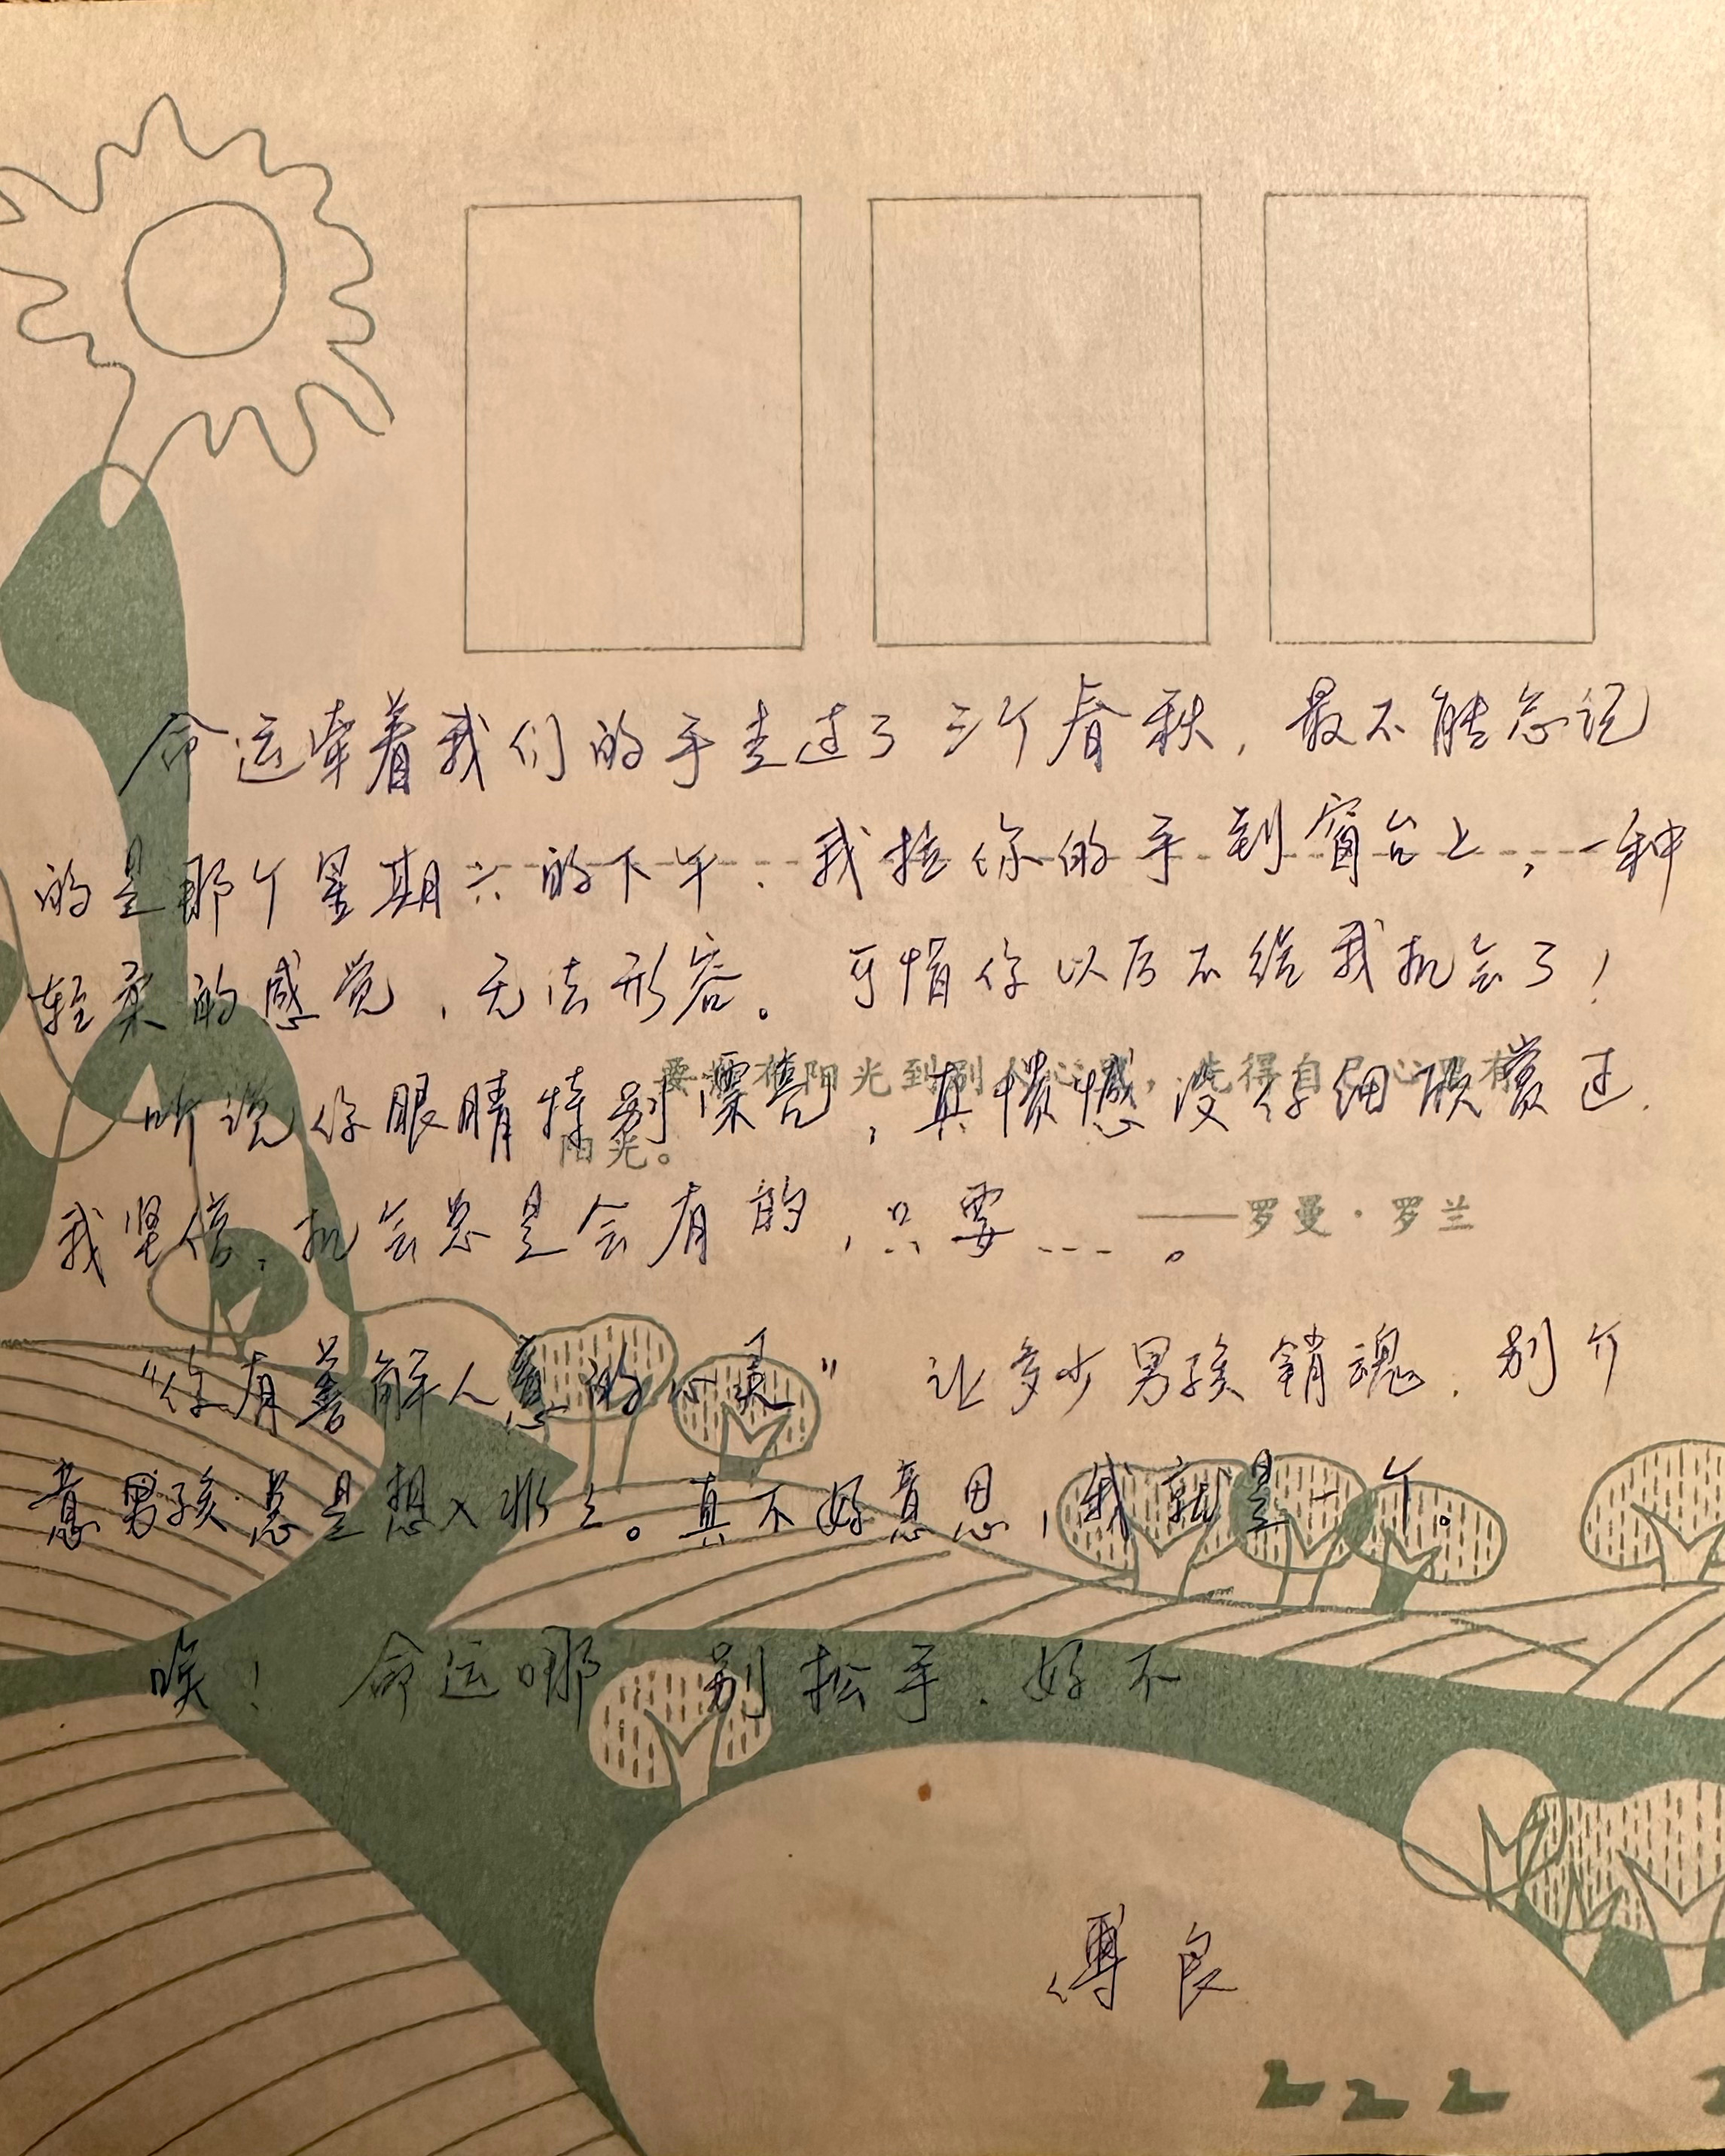 命运牵着我们的手走过了三个春秋，最不能忘记
的是那个星期六的下午．我拉你的手到窗台上，一种
轻柔的感觉，无法形容。可惜你以后不给我机会了！
要 阳光到别人心 ，先得自己心里有
听说你眼睛特别漂亮，真愤憾没仔细欣赏过．
阳光。
我坚信，机会总是会有的，只要…。
——罗曼·罗兰
“你有善解人意的心灵” 让多少男孩销魂．别介
意男孩总是想入非非。真不好意思，我就是一个。
唉！ 命运哪 别松手．好不
傅良